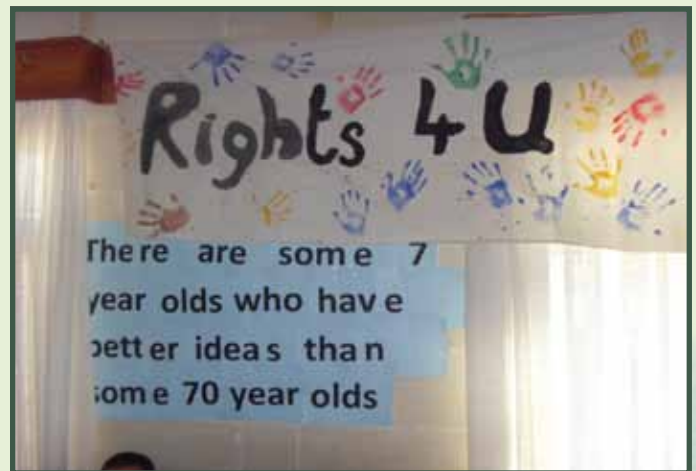 Rights 4 U
There are some 7
year olds who have
better ideas than
some 70 year olds